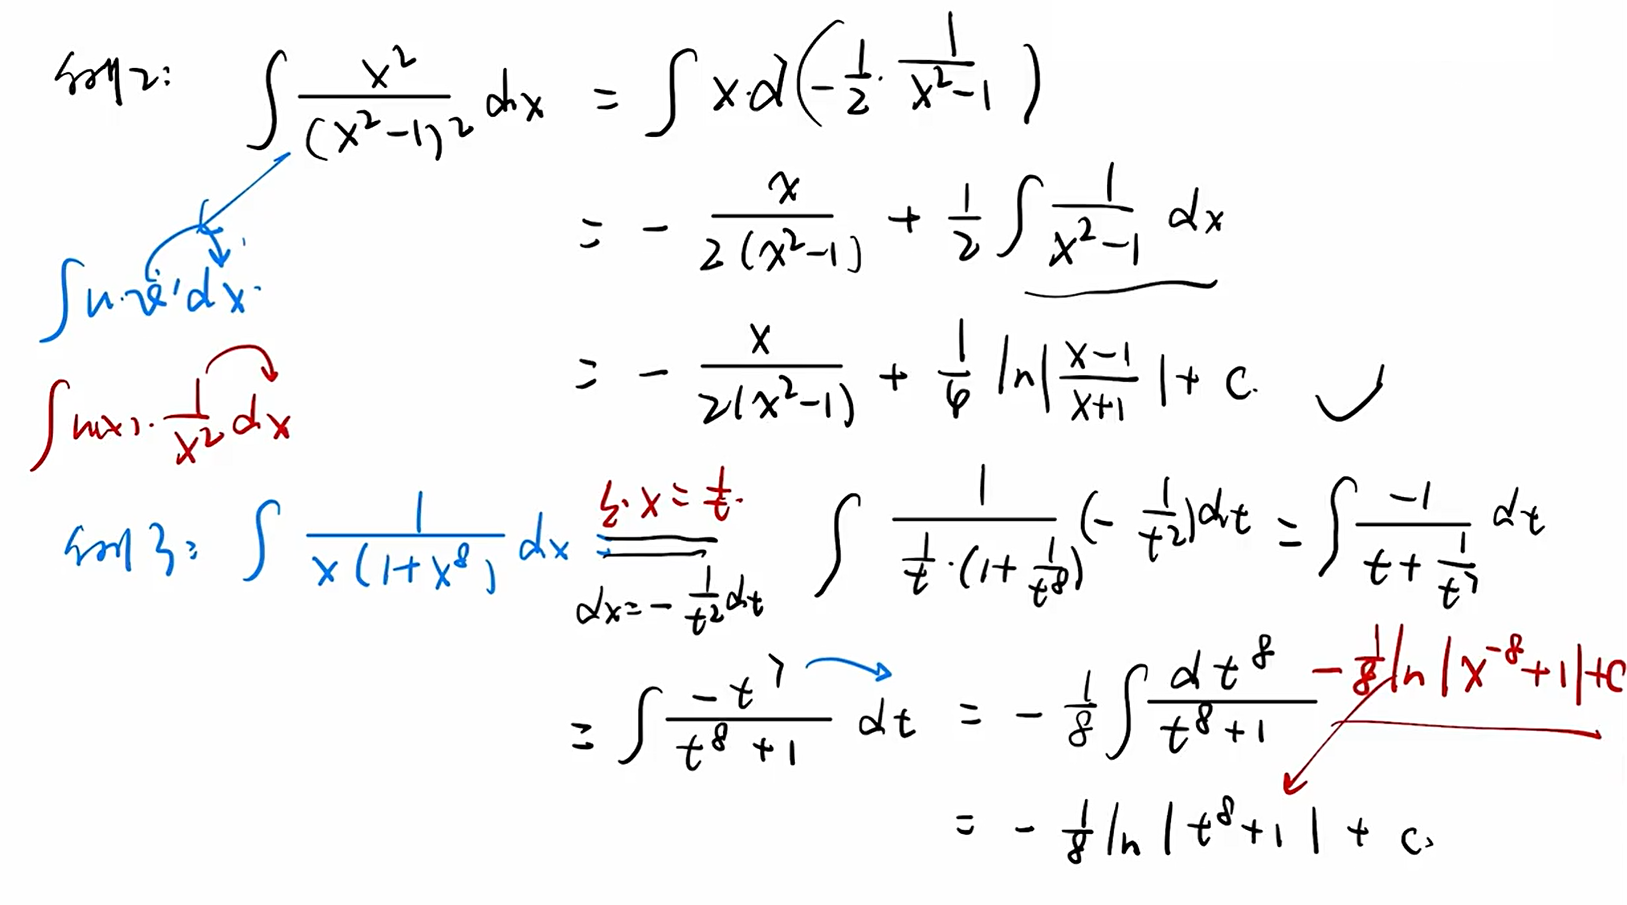 例2: ∫ x²/(x²-1)² dx = ∫ x·d(-1/2 · 1/(x²-1))
= - x/(2(x²-1)) + 1/2 ∫ 1/(x²-1) dx
∫u·v'dx.
= - x/(2(x²-1)) + 1/4 ln|(x-1)/(x+1)| + C.
∫u(x)·1/x² dx
例3: ∫ 1/(x(1+x⁸)) dx = 令x=1/t. dx=-1/t² dt ∫ 1/(1/t·(1+1/t⁸)) (-1/t²)dt = ∫ -1/(t+1/t⁷) dt
= ∫ -t⁷/(t⁸+1) dt = -1/8 ∫ dt⁸/(t⁸+1) -1/8 ln|x⁻⁸+1|+C
= -1/8 ln|t⁸+1| + C,